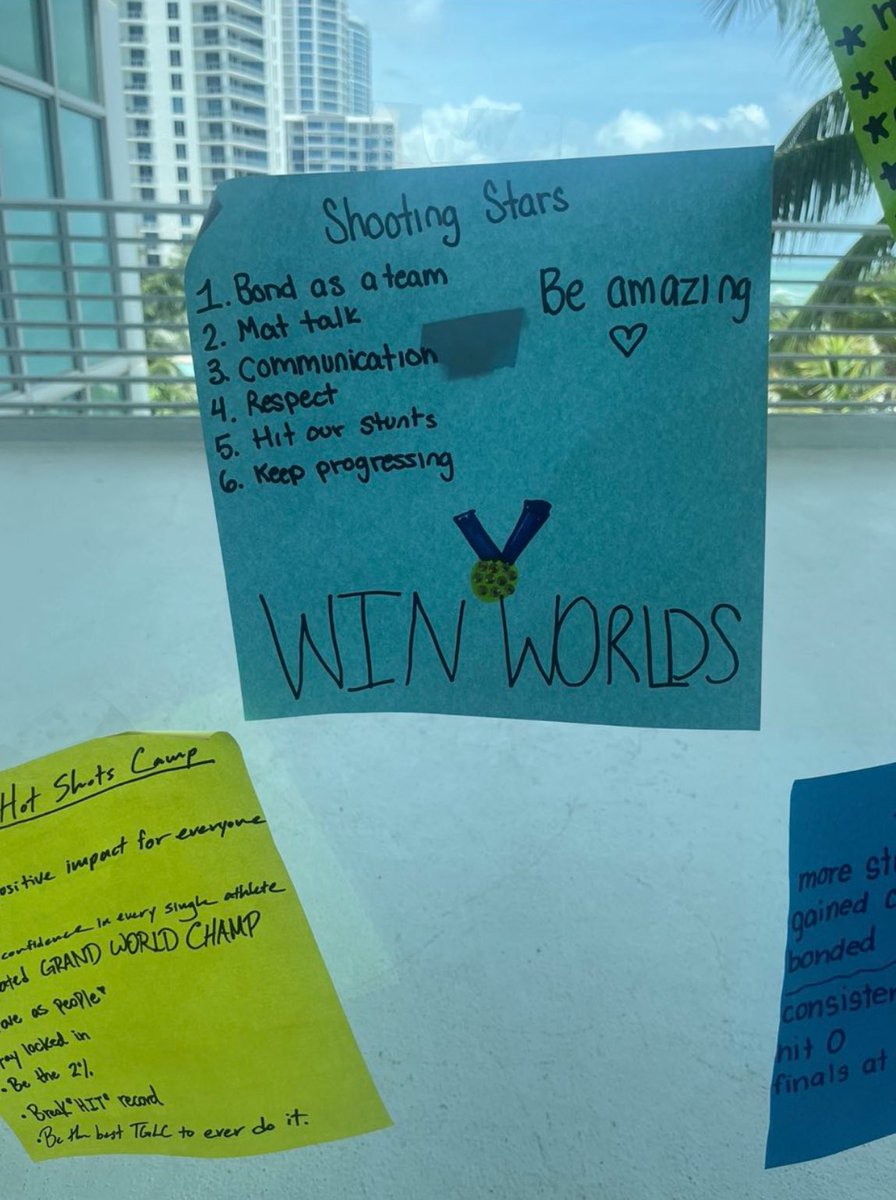 Shooting Stars
1. Bond as a team
2. Mat talk
3. Communication
4. Respect
5. Hit our stunts
6. Keep progressing
Be amazing
WIN WORLDS
Hot Shots Camp
ositive impact for everyone
confidence in every single athlete
GRAND WORLD CHAMP
as people"
locked in
• Be the 2%
• Break "HIT" record
• Be the best TGLC to ever do it.
more
gained
bonded
hit 0
finals at